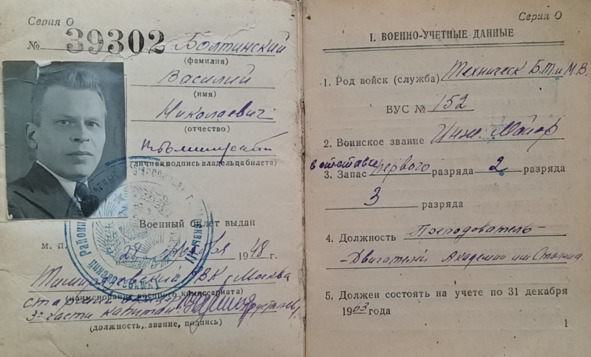 Серия О
№ 39302 Болтинский
(фамилия)
Василий
(имя)
Николаевич
(отчество)
(личная подпись владельца билета)
Военный билет выдан
М. П. 28 1948 г.
Тимирязевский РВК г. Москва
(наименование военного комиссариата)
3 части капитан
(должность, звание, подпись)
Серия О
I. ВОЕННО-УЧЕТНЫЕ ДАННЫЕ
1. Род войск (служба) Техническ Б.Т. и М.В.
ВУС № 152
2. Воинское звание Инж. Майор
в отставке
3. Запас первого разряда 2 разряда
3 разряда
4. Должность Преподователь-
Академии им Сталина
5. Должен состоять на учете по 31 декабря
1903 года
1